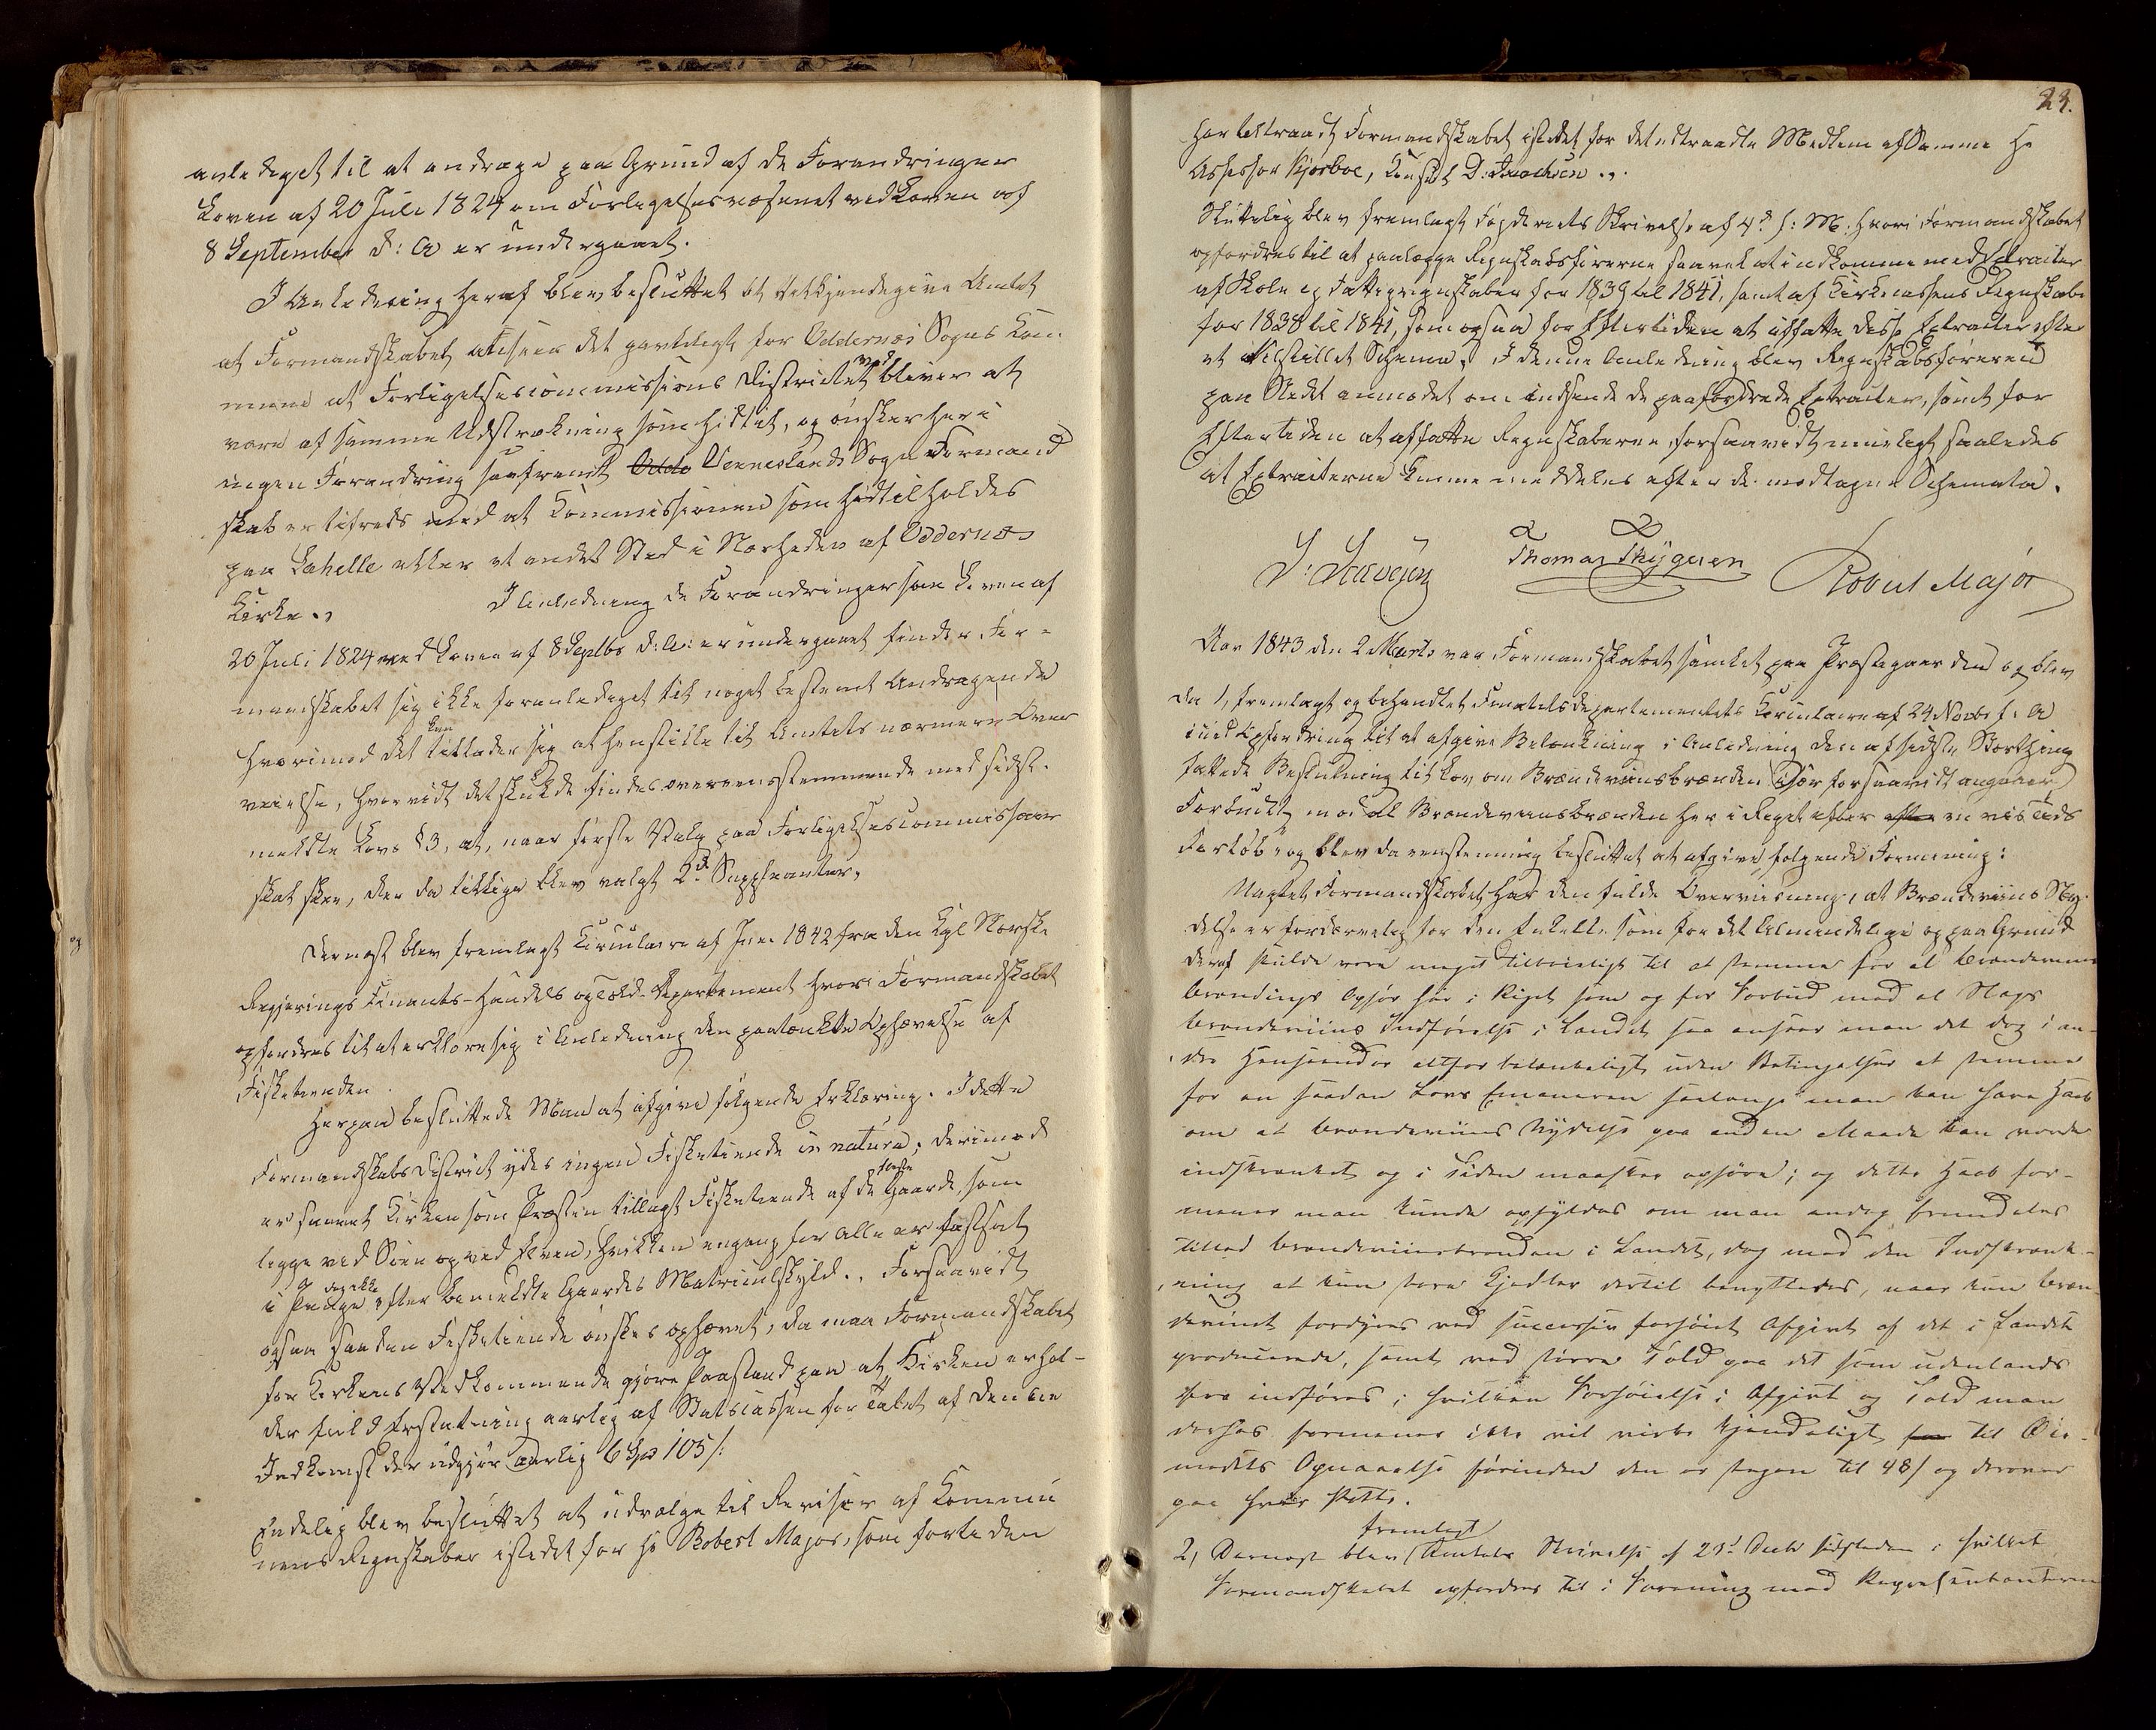 anlediget til at andrage paa Grund af de Forandringer
Loven af 20 Juli 1824 om Forligelsesvæsenet ved Loven af
8 September d: A er undergaaet.
I Anledning heraf blev besluttet at tilkjendegive Amtet
at Formandskabet ansees det gavnligst for Oddernæs Sogns Com
mune at Forligelsescommissions Districtet ved bliver at
være af samme Udstrækning som hidtil, og ønsker heri
ingen Forandring saafremt Odde Venneslands Sogns Formand
skab er tilfreds med at Commissionen som hidtil holdes
paa Lahelle eller et andet Sted i Nærheden af Oddernæs
Kirke.,
I Anledning de Forandringer som Loven af
20 Juli 1824 ved Loven af 8 Septbr d: A: er undergaaet finder For-
mandskabet sig ikke foranlediget til noget bestemt Andragende
hvorimod det kun tillader sig at henstille til Amtets nærmere Over
veielse, hvorvidt det skulde findes overeensstemmende med sidst-
meldte Lovs § 3, at, naar første Valg paa Forligelsescommissair
skal skee, der da tillige blev valgt 2de Suppleanter.
Dernæst blev fremlagt Circulaire af Juni 1842 fra den Kgl Norske
Regjerings Finants-Handels og Told-Departement hvori Formandskabet
opfordres til at erklære sig i Anledning den paatænkte Ophævelse af
Fisketienden.
Herpaa besluttede Man at afgive følgende Erklæring. I dette
Formandskabs District ydes ingen Fisketiende in natura; derimod
er saavel Kirken som Præsten tillagt Fisketiende af de Gaarde, som
ligge ved Søen og ved Elven, hvilken engang for Alle er fastsat
i Penge og dog ikke efter bemeldte Gaardes Matriculskyld., Forsaavidt
ogsaa saadan Fisketiende ønskes ophævet, da maa Formandskabet
for Kirkens Vedkommende gjøre Paastand paa at Kirken erhol-
der fuld Erstatning aarlig af Statscassen for Tabet af denne
Indkomst der udgjør aarlig 6 Spd 105 /:
Endelig blev besluttet at udvælge til Revisor af Commu
nens Regnskaber istedet for Hr Robert Major, som fortiden
23.
har tiltraadt Formandskabet istedet for det udtraadte Medlem af samme Hr
Assessor Kjørboe, Consul D. Isaachsen.,.
Sluttelig blev fremlagt Fogderiets Skrivelse af 4de f: M. hvori Formandskabet
opfordres til at paalægge Regnskabsførerne snarest at indkomme med Extracter
af Skole og Fattigregnskaber for 1839 til 1841, samt af Kirkecassens Regnskabe
for 1838 til 1841, som ogsaa for Eftertiden at affatte disse Extracter efter
et tilstillet Schema. I denne Anledning blev Regnskabsføreren
paa Stedet anmodet om indsende de paafordrede Extracter, samt for
Eftertiden at affatte Regnskaberne forsaavidt muligt saaledes
at Extracterne kunne meddeles efter de modtagne Schemata.
Thomas Thygesen
Robert Major
Aar 1843 den 2 Marts var Formandskabet samlet paa Præstegaarden og blev
da 1, fremlagt og behandlet Finantsdepartementets Circulaire af 24 Novbr f. A
med Opfordring til at afgive Betænkning i Anledning den af sidste Storthing
fattede Beslutning til Lov om Brændeviinsbrænden især forsaavidt angaaer
Forbudet mod al Brændeviinsbrænden her i Riget efter efter en vis Tids
Forløb, og blev da eenstemmig besluttet at afgive følgende Formening:
Uagtet Formandskabet har den fulde Overviisning, at Brændeviins Ny-
delse er fordærvelig for den Enkelte som for det Almindelige og paa Grund
deraf skulde være meget tilbøieligt til at stemme for al Brændeviins
brændings Ophør her i Riget som og for Forbud mod al Slags
Brændeviins Indførelse i Landet saa ansees man det dog i an-
dre Henseender altfor betænkeligt uden Betingelser at stemme
for en saadan Lovs Emaneren saalænge man kan have Haab
om at Brændeviins Nydelse paa anden Maade kan vorde
indskrænket og i Tiden maaskee ophøre; og dette Haab for-
mener man kunde opfyldes om man endog fremdeles
tillod Brændeviinsbrænden i Landet, dog med den Indskrænk-
ning at kun store Kjedler dertil benyttedes, naar kun Bræn
deviinet fordyres ved successiv forhøiet Afgivt af det i Landet
producerede, samt ved større Told paa det som udenlands
fra indføres, i hvilken Forhøielse i Afgivt og Told man
derhos formener ikke vil virke kjendeligt for til Øie-
medets Opnaaelse førinden den er stegen til 48 / og derover
paa hver Potte.
2, Dernæst blev fremlagt Amtets Skrivelse af 29de Decbr sidstleden i hvilket
Formandskabet opfordres til i Forening med Repræsentanterne